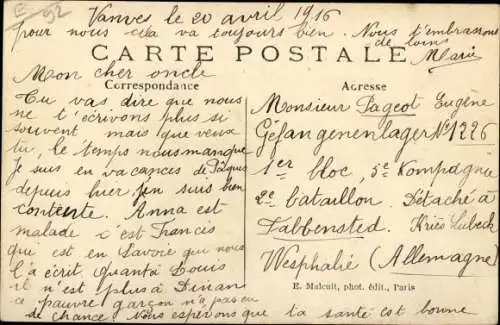 E 92
Vanves le 20 avril 1916
pour nous cela va toujours bien. Nous t'embrassons
de loin
Marie
CARTE POSTALE
Mon cher oncle
Correspondance
Adresse
Tu vas dire que nous
ne t'écrivons plus si
souvent mais que veux
tu, le temps nous manque
Je suis en vacances de Pâques
depuis hier, j'en suis bien
contente. Anna est
malade c'est Francis
qui est en Savoie qui nous
l'a écrit. Quant à Louis
il n'est plus à Dinan
ce pauvre garçon n'a pas eu
de chance. Nous espérons que ta santé est bonne
Monsieur Pageot Eugène
Géfangenenlager No 1226
1er bloc, 5e Kompagnie
2e bataillon. Détaché à
Fabbensted. Kriës Lubeck
Wesphalie (Allemagne)
E. Malcuit, phot. édit., Paris